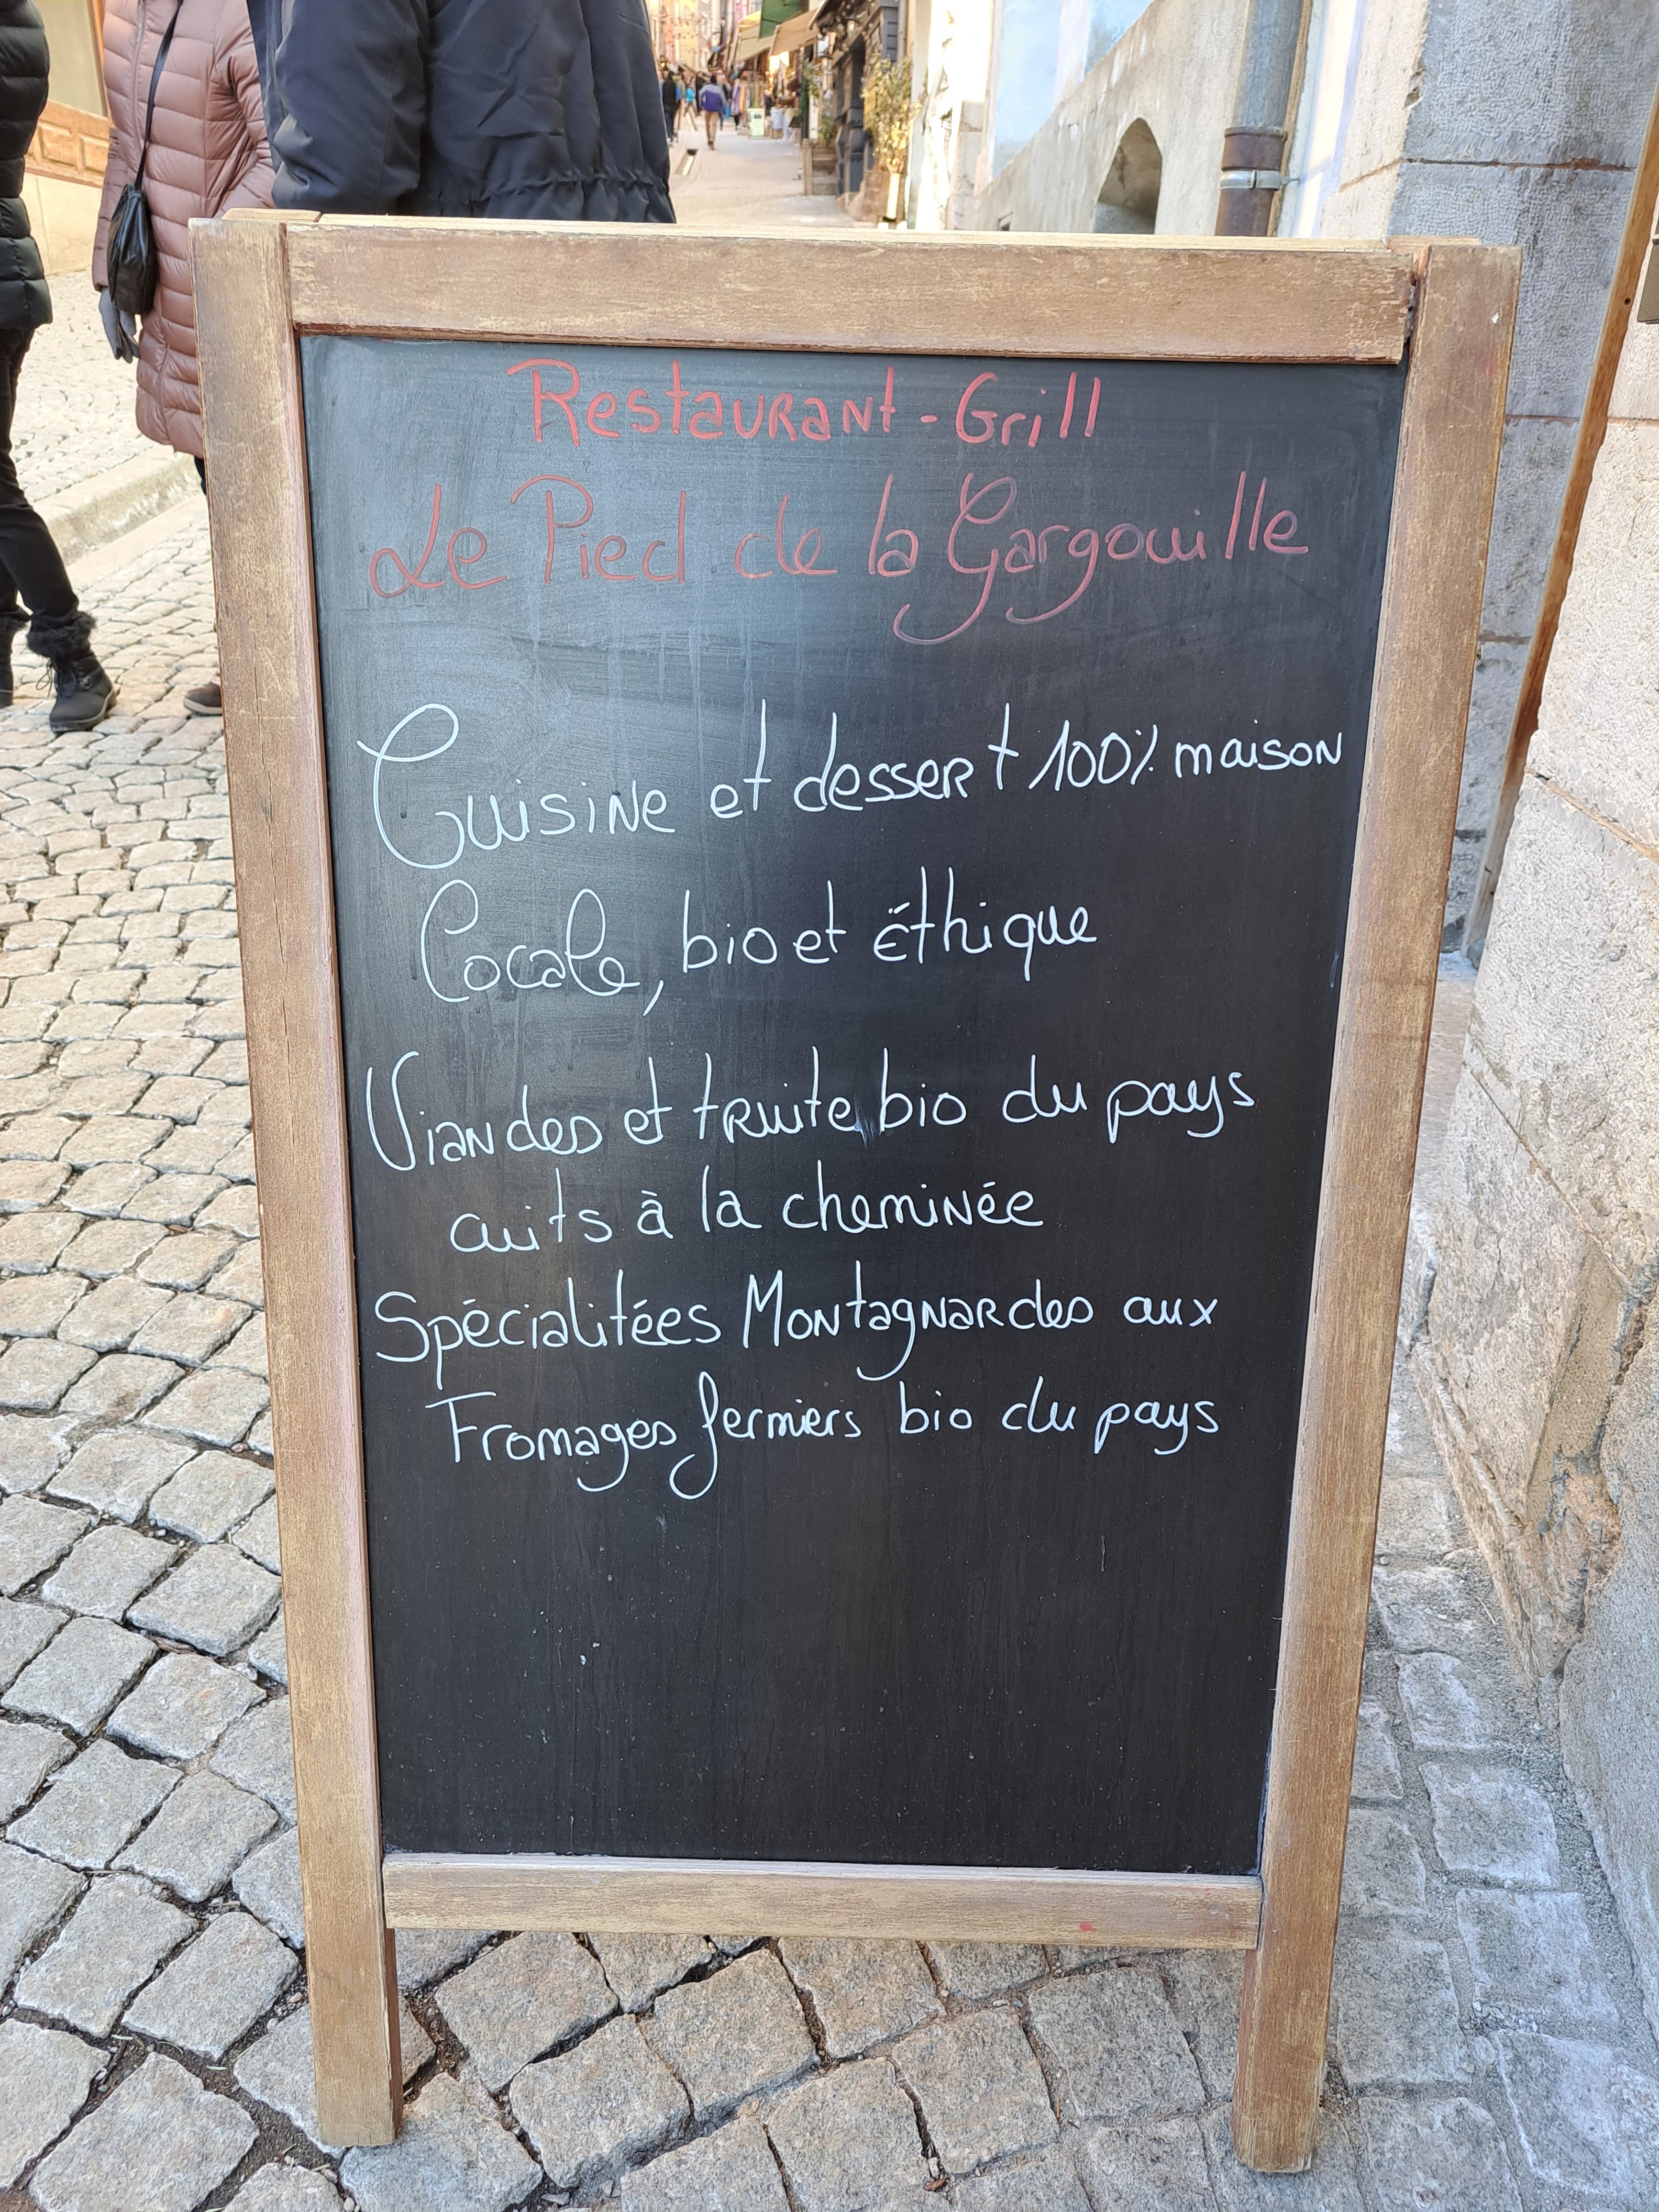 Restaurant - Grill
Le Pied de la Gargouille
Cuisine et dessert 100% maison
Locale, bio et Éthique
Viandes et truite bio du pays
cuits à la cheminée
Spécialitées Montagnardes aux
Fromages fermiers bio du pays